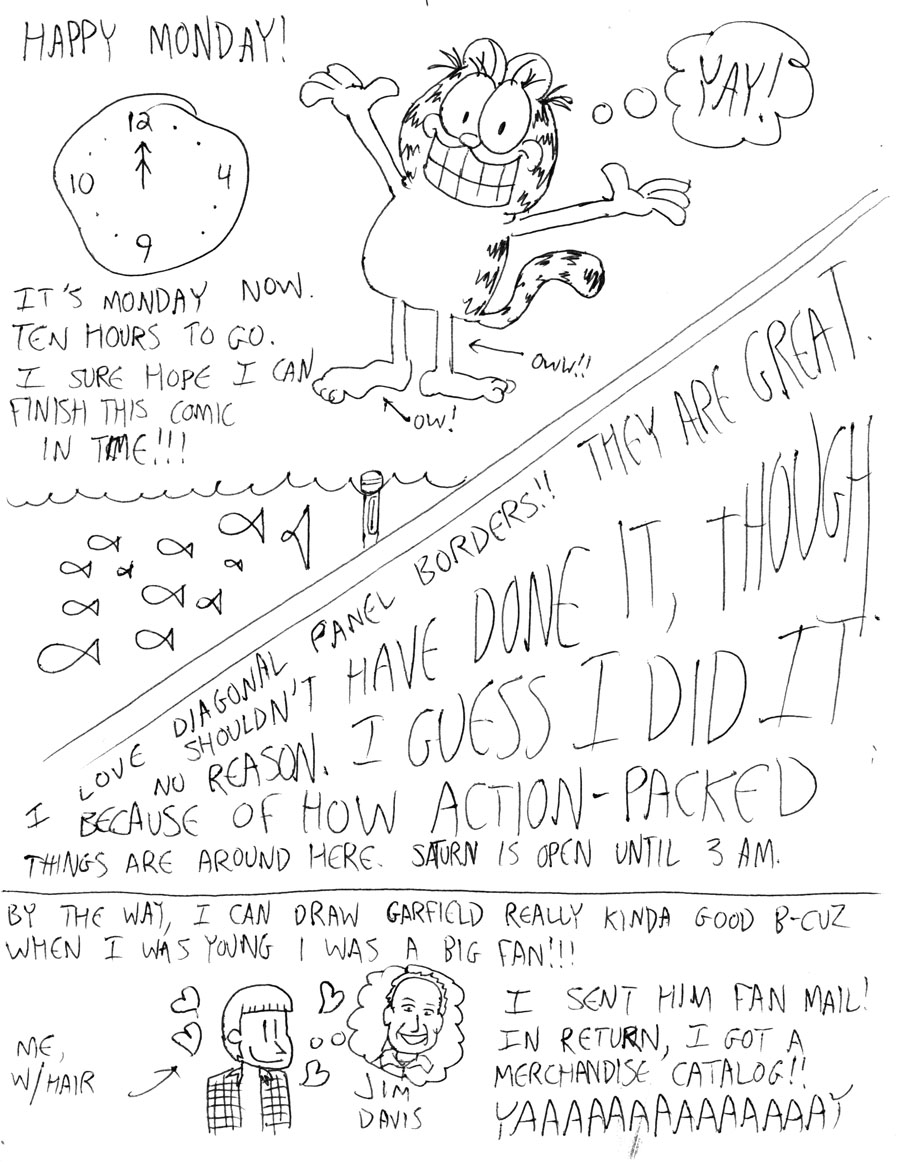 HAPPY MONDAY!
YAY!
12
10
4
9
IT'S MONDAY NOW.
TEN HOURS TO GO.
I SURE HOPE I CAN
FINISH THIS COMIC
IN TIME!!!
OWW!!
OW!
I LOVE DIAGONAL PANEL BORDERS!! THEY ARE GREAT.
SHOULDN'T HAVE DONE IT, THOUGH.
NO REASON. I GUESS I DID IT
BECAUSE OF HOW ACTION-PACKED
THINGS ARE AROUND HERE. SATURN IS OPEN UNTIL 3 AM.
BY THE WAY, I CAN DRAW GARFIELD REALLY KINDA GOOD B-CUZ
WHEN I WAS YOUNG I WAS A BIG FAN!!!
ME,
W/HAIR
JIM
DAVIS
I SENT HIM FAN MAIL!
IN RETURN, I GOT A
MERCHANDISE CATALOG!!
YAAAAAAAAAAAAAAAY